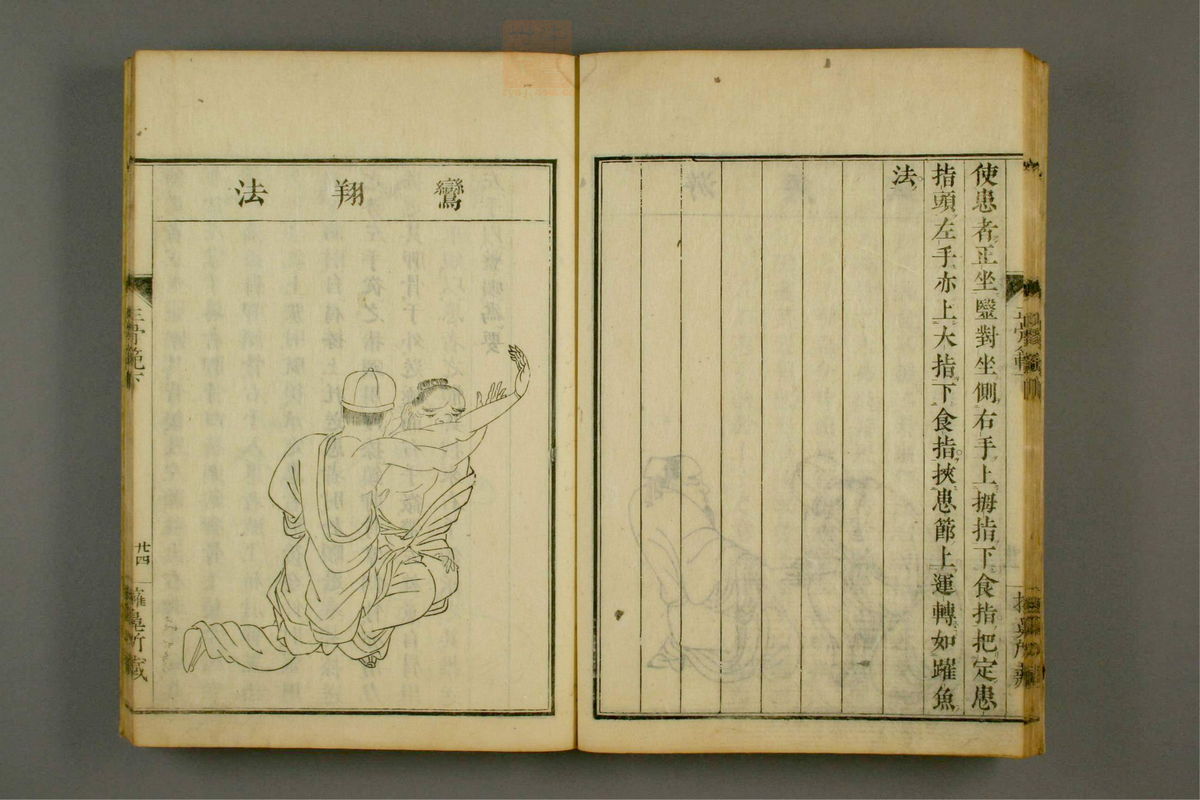 使患者正坐毉對坐側右手上拇指下食指把定患
指頭左手亦上大指下食指挾患節上運轉如躍魚
法
鸞翔法
正骨範下
廿四